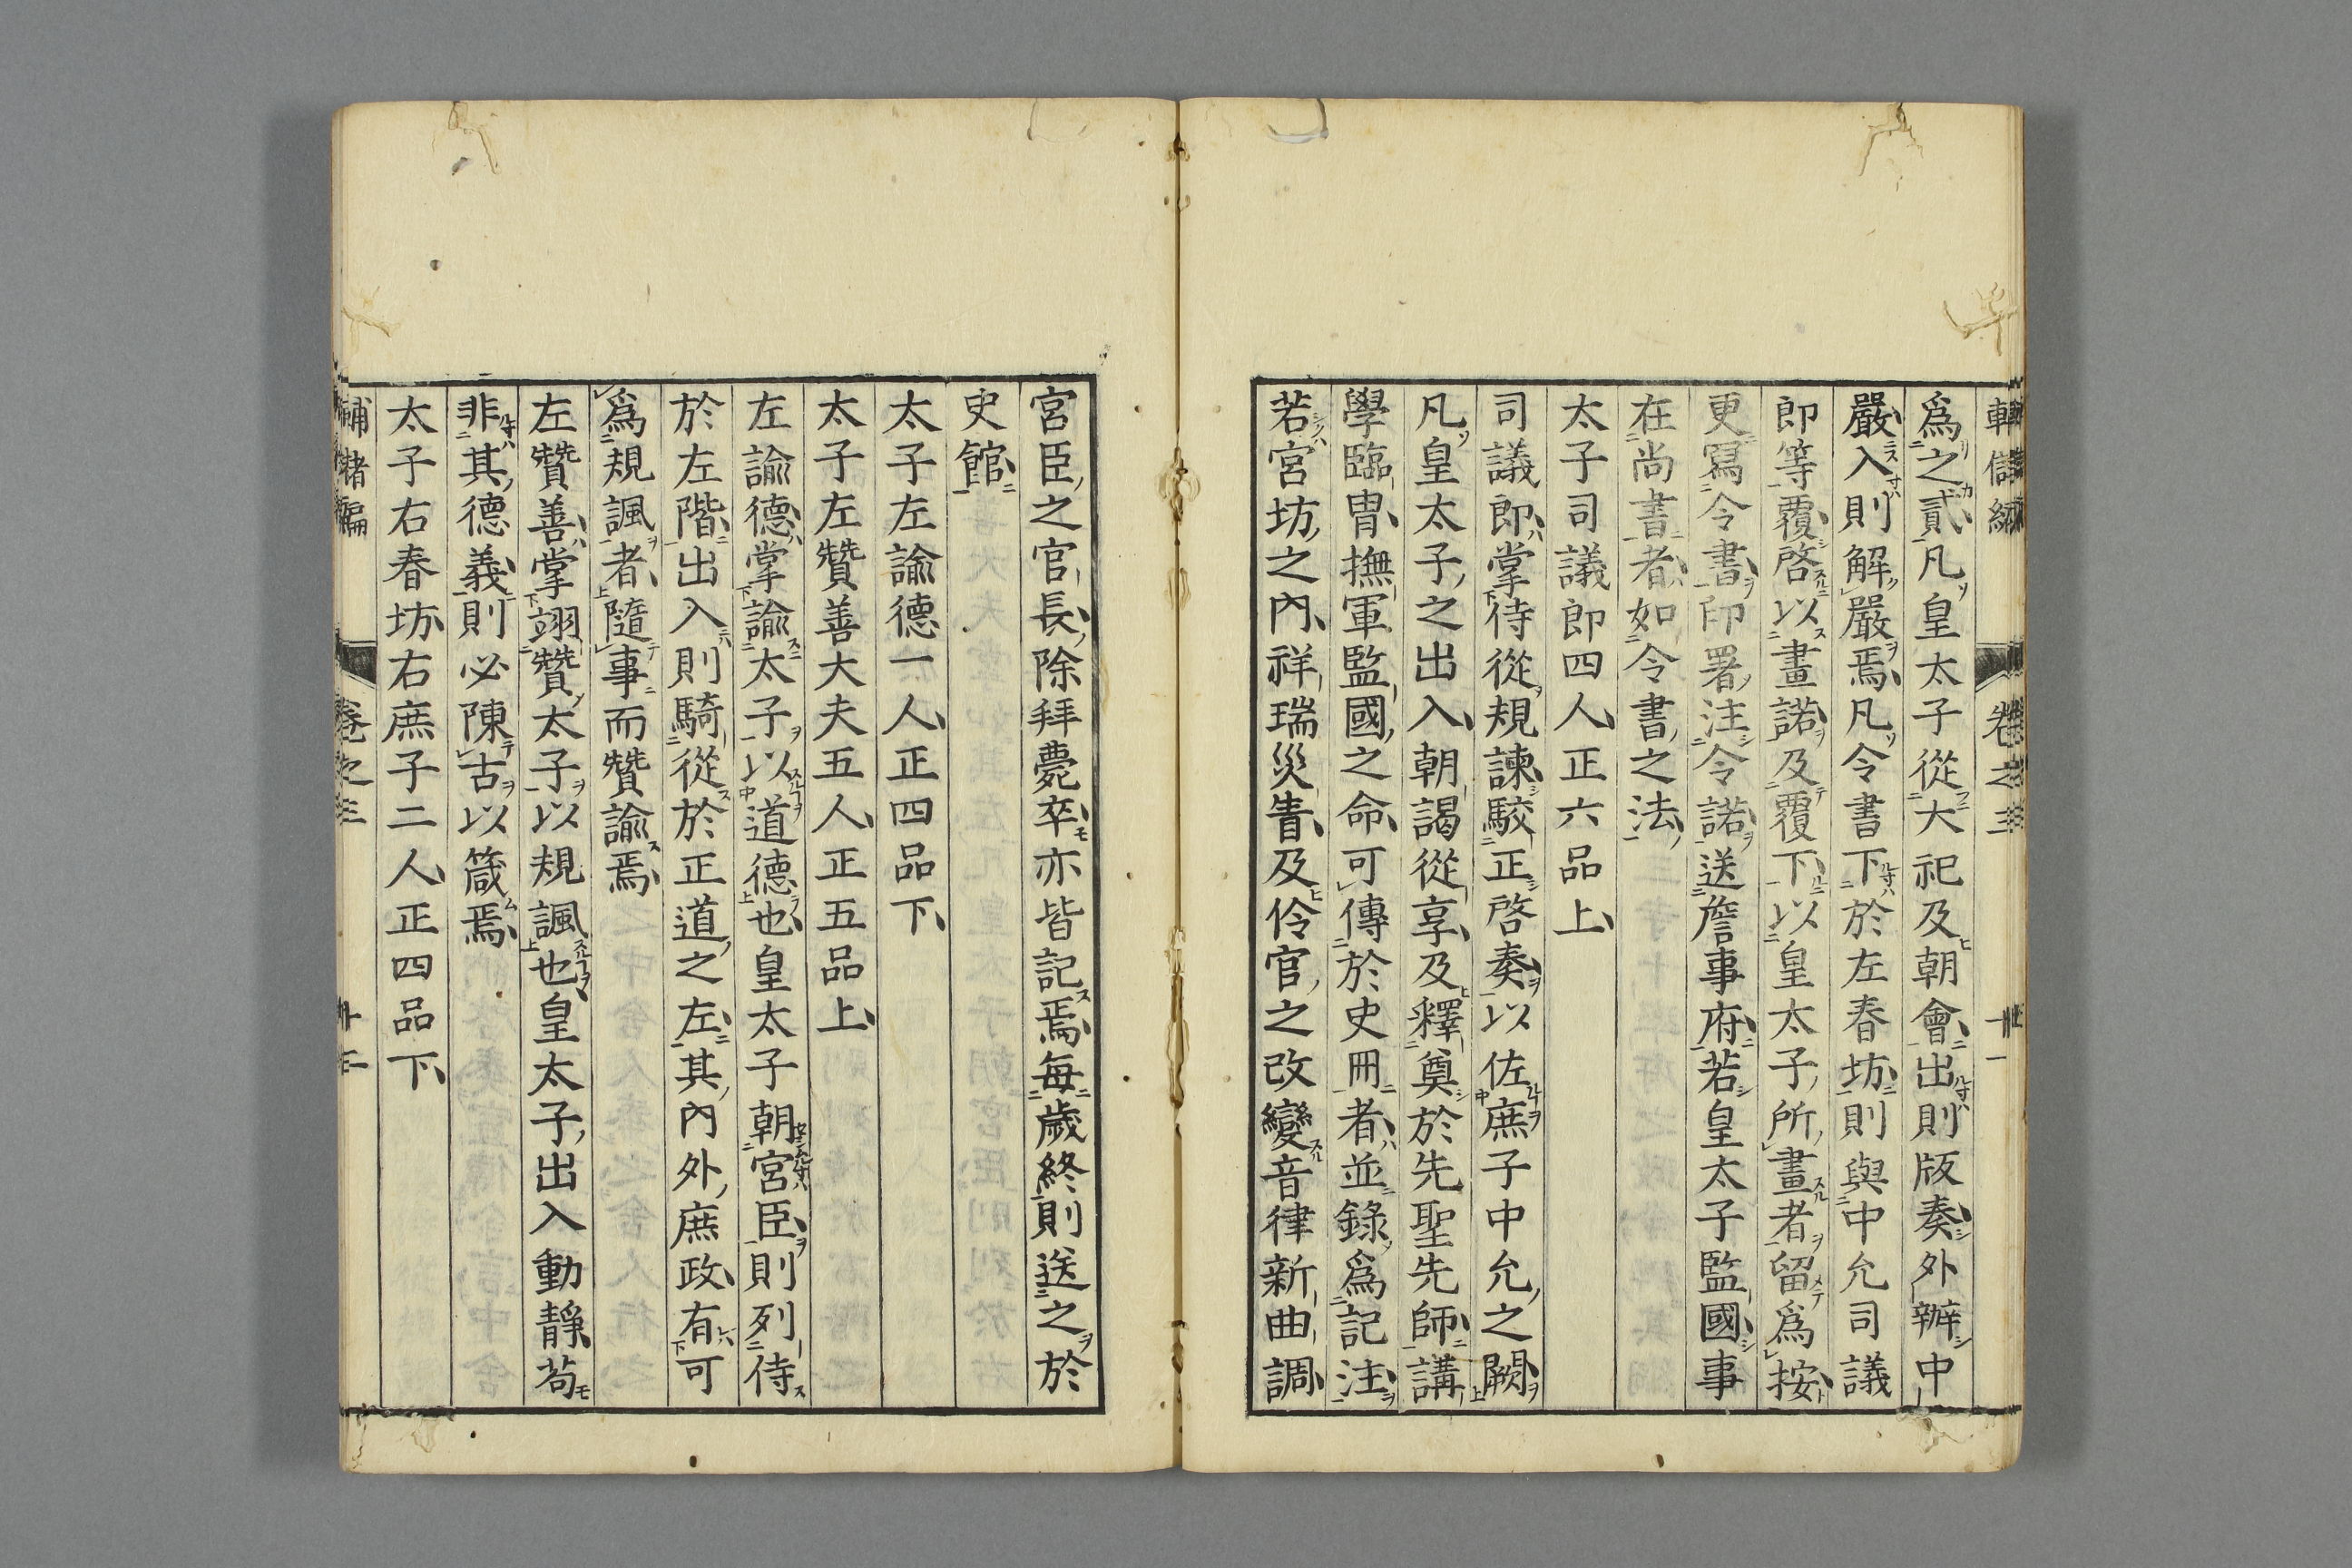 卷之三
爲之貳凡皇太子從大祀及朝會出則版奏外辦中
嚴入則解嚴焉凡令書下於左春坊則與中允司議
郎等覆啓以畫諾及覆下以皇太子所畫者留爲按
更冩令書印署注令諾送詹事府若皇太子監國事
在尚書者如令書之法
太子司議郎四人正六品上
司議郎掌侍從規諫駮正啓奏以佐庶子中允之闕
凡皇太子之出入朝謁從享及釋奠於先聖先師講
學臨冑撫軍監國之命可傳於史冊者並錄爲記注
若宮坊之內祥瑞災眚及伶官之改變音律新曲調
宮臣之官長除拜薨卒亦皆記焉每歲終則送之於
史館
太子左諭德一人正四品下
太子左贊善大夫五人正五品上
左諭德掌諭太子以道德也皇太子朝宮臣則列侍
於左階出入則騎從於正道之左其內外庶政有可
爲規諷者隨事而贊諭焉
左贊善掌翊贊太子以規諷也皇太子出入動靜苟
非其德義則必陳古以箴焉
太子右春坊右庶子二人正四品下
卷之三